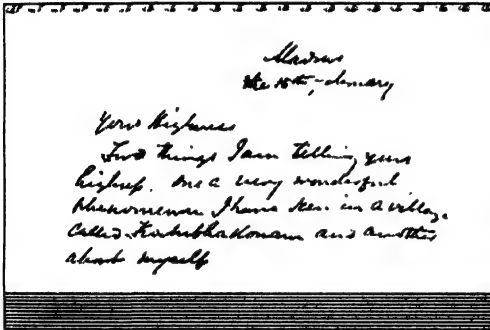 Madras
the 15th, January
Your Highness
Two things I am telling your
highness. One a very wonderful
phenomenon I have seen in a village
called Kumbhakonam and another
about myself